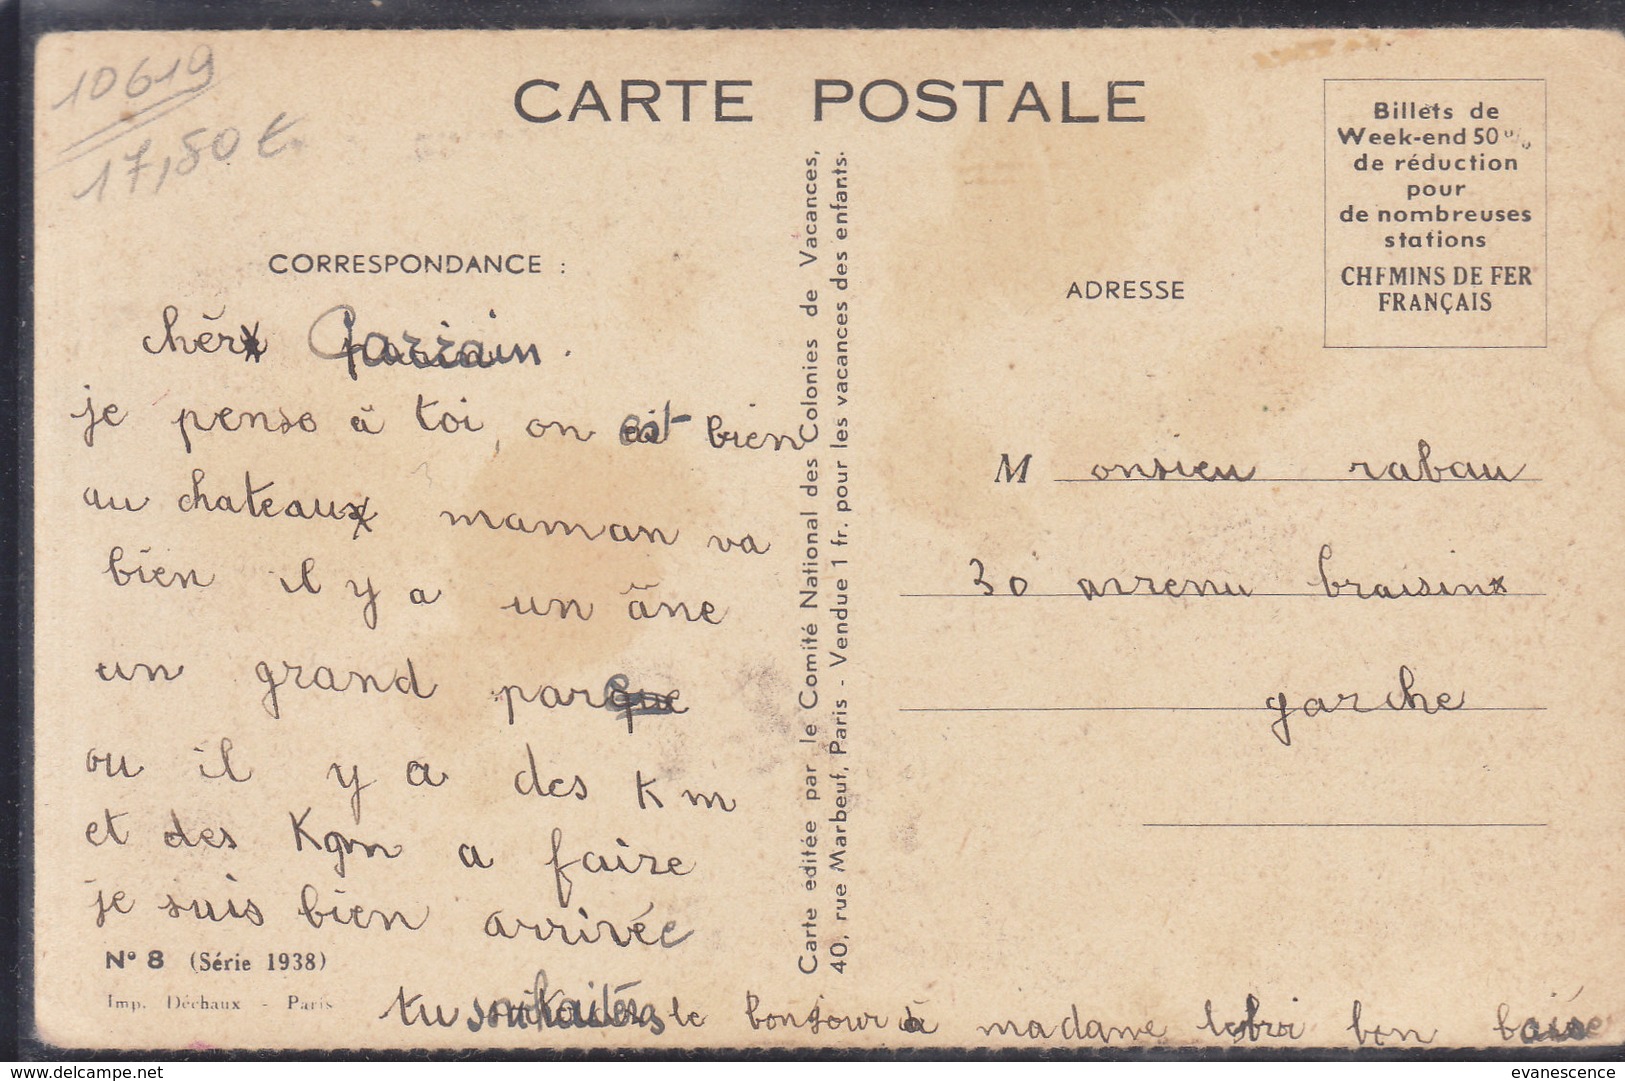 10619
17,50 €
CARTE POSTALE
Billets de
Week-end 50 %
de réduction
pour
de nombreuses
stations
CHEMINS DE FER
FRANÇAIS
CORRESPONDANCE :
chèr Parrain.
je pense à toi, on est bien
au chateau maman va
bien il y a un âne
un grand parc
ou il y a des Km
et des Kgm a faire
je suis bien arrivée
tu souhaitéras le bonjour à madame bon baise
N° 8 (Série 1938)
Imp. Déchaux - Paris
Carte editée par le Comité National des Colonies de Vacances,
40, rue Marbeuf, Paris - Vendue 1 fr. pour les vacances des enfants.
ADRESSE
Monsieu rabau
30 avrenu braisin
garche
delcampe.net
evanescence